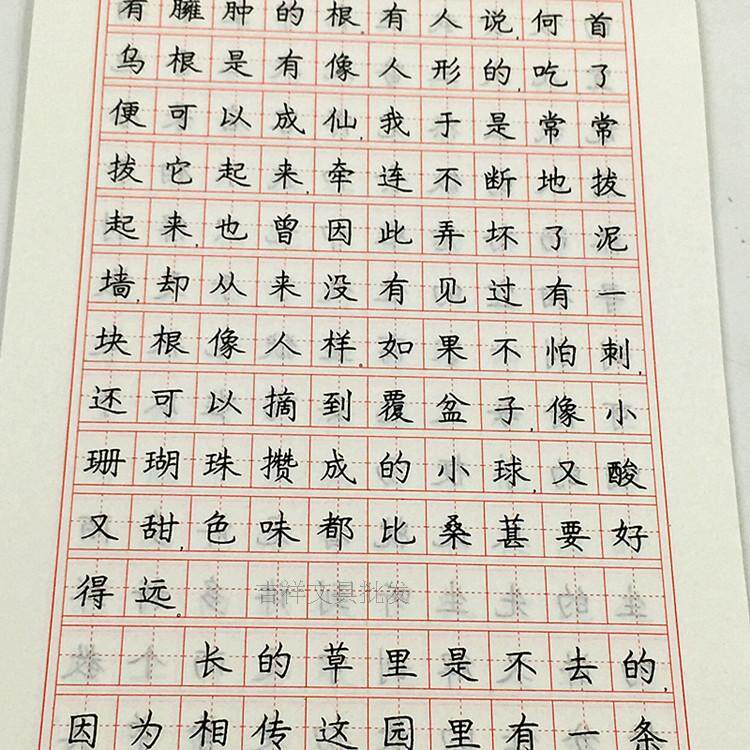 有臃肿的根.有人说.何首
乌根是有像人形的.吃了
便可以成仙.我于是常常
拔它起来.牵连不断地拔
起来.也曾因此弄坏了泥
墙.却从来没有见过有一
块根像人样.如果不怕刺.
还可以摘到覆盆子.像小
珊瑚珠攒成的小球.又酸
又甜.色味都比桑葚要好
得远.
吉祥文具批发
长的草里是不去的.
因为相传这园里有一条